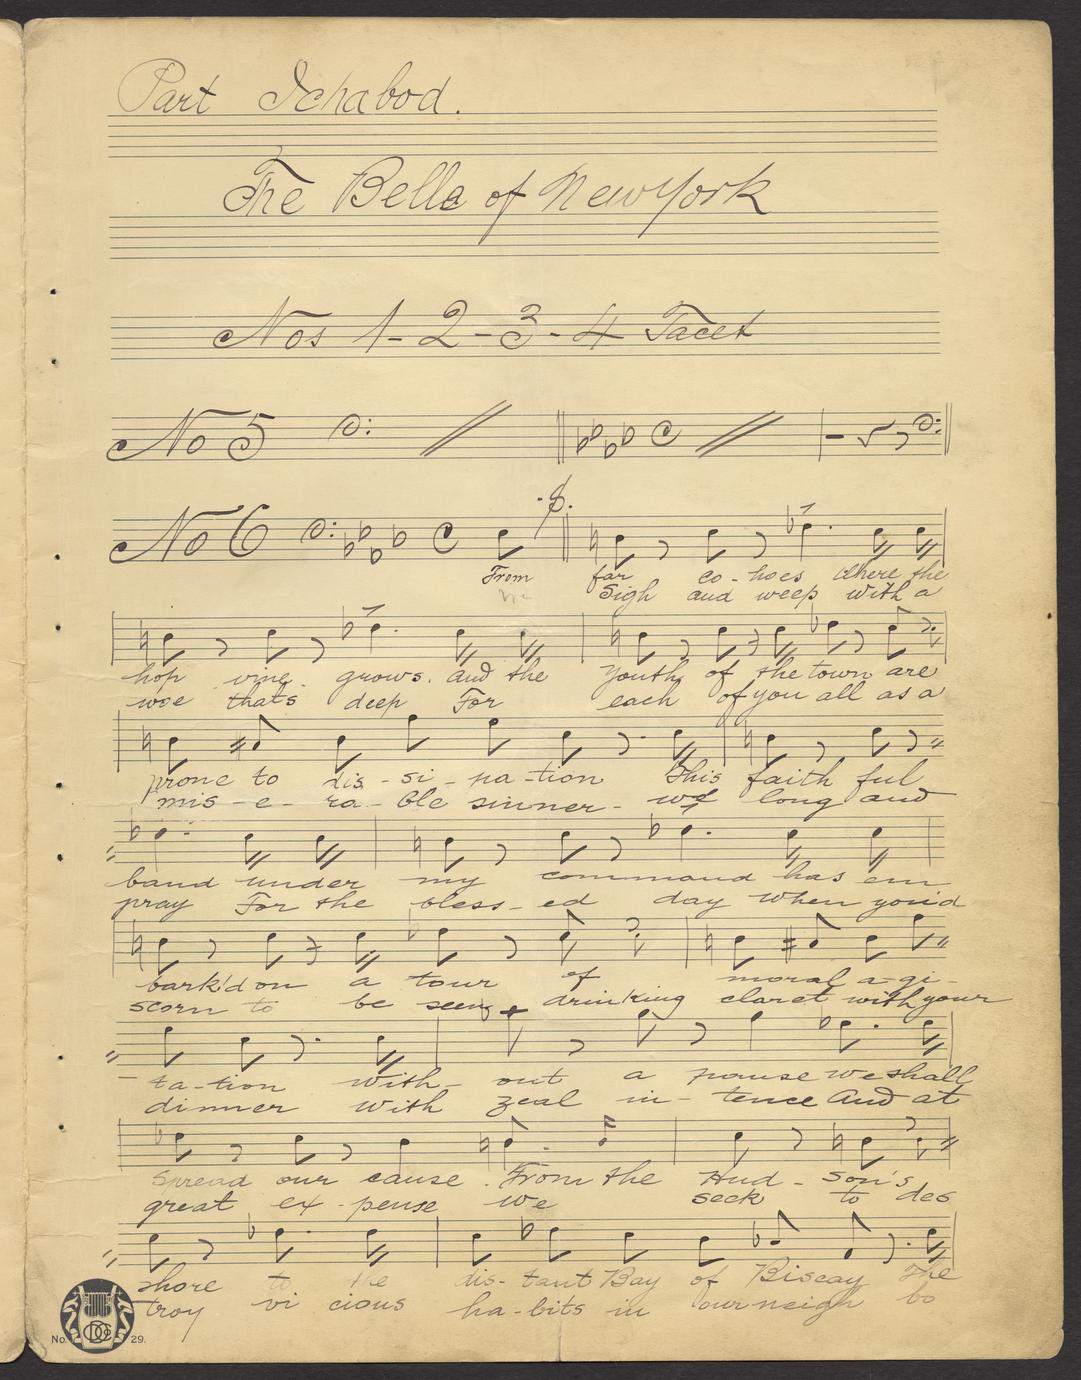 Part Ichabod.
The Belle of New York
Nos 1-2-3-4 Tacet
No 5
No 6
From far co-hoes where the
Sigh and weep with a
hop vine grows. and the youth of the town are
woe thats deep For each of you all as a
prone to dis-si-pa-tion This faith ful
mis-e-ra-ble sinner- we long and
band under my command has em
pray For the bless-ed day when you'd
bark'd on a tour of moral a-gi-
scorn to be seen drinking claret with your
ta-tion with- out a pause we shall
dinner with zeal in-tence And at
spread our cause. From the Hud-son's
great ex-pense we seek to des
shore to the dis-tant Bay of Biscay The
troy vi cious ha-bits in our neigh bo
No. 29.